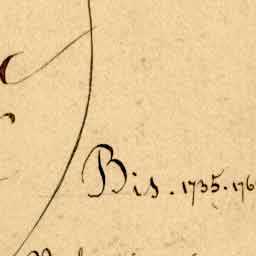 Bis. 1735. 176